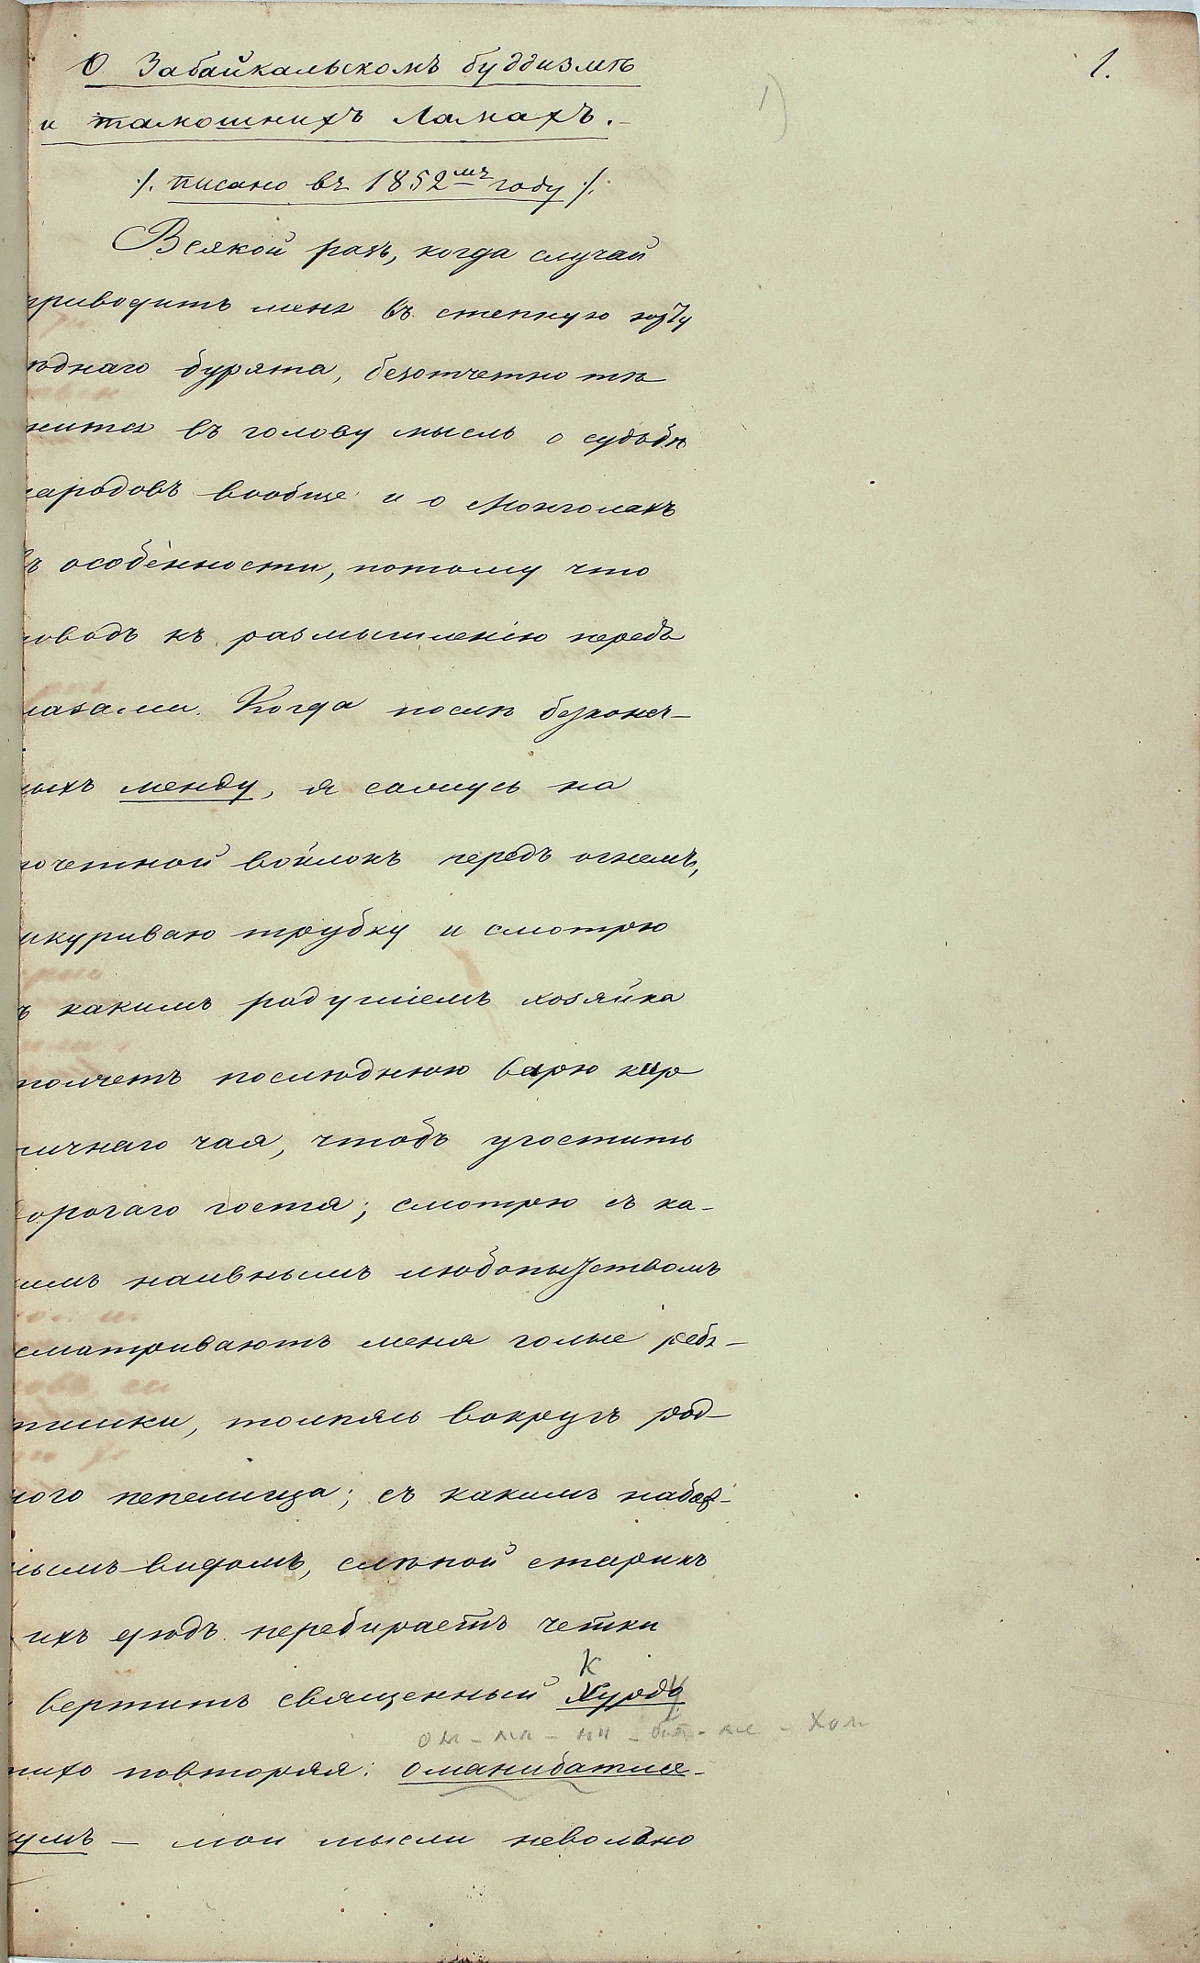 1.
О Забайкальскомъ буддизмѣ
и тамошнихъ Ламахъ.
1)
/. писано въ 1852мъ году /.
Всякой разъ, когда случай
приводитъ меня въ степную юрту
ѣднаго бурята, безотчетно тѣ
нится въ голову мысль о судьбѣ
народовъ вообще и о Монголахъ
въ особенности, потому что
поводъ къ размышленію передъ
лазами. Когда послѣ безконеч-
ныхъ менду, я сажусь на
почетной войлокъ передъ огнемъ,
акуриваю трубку и смотрю
ъ какимъ радушіемъ хозяйка
толчетъ послѣднюю варю кир
пичнаго чая, чтобъ угостить
дорогаго гостя; смотрю съ ка-
кимъ наивнымъ любопытствомъ
сматриваютъ меня голые ребя-
тишки, толпясь вокругъ род-
ного пепелища; съ какимъ набож-
нымъ видомъ, слѣпой старикъ
ихъ дѣдъ перебираетъ четки
К
вертитъ священный Хурдэ
ом - ма - ни - бат - ме - хом
тихо повторяя: оманибатме-
хумъ — мои мысли невольно